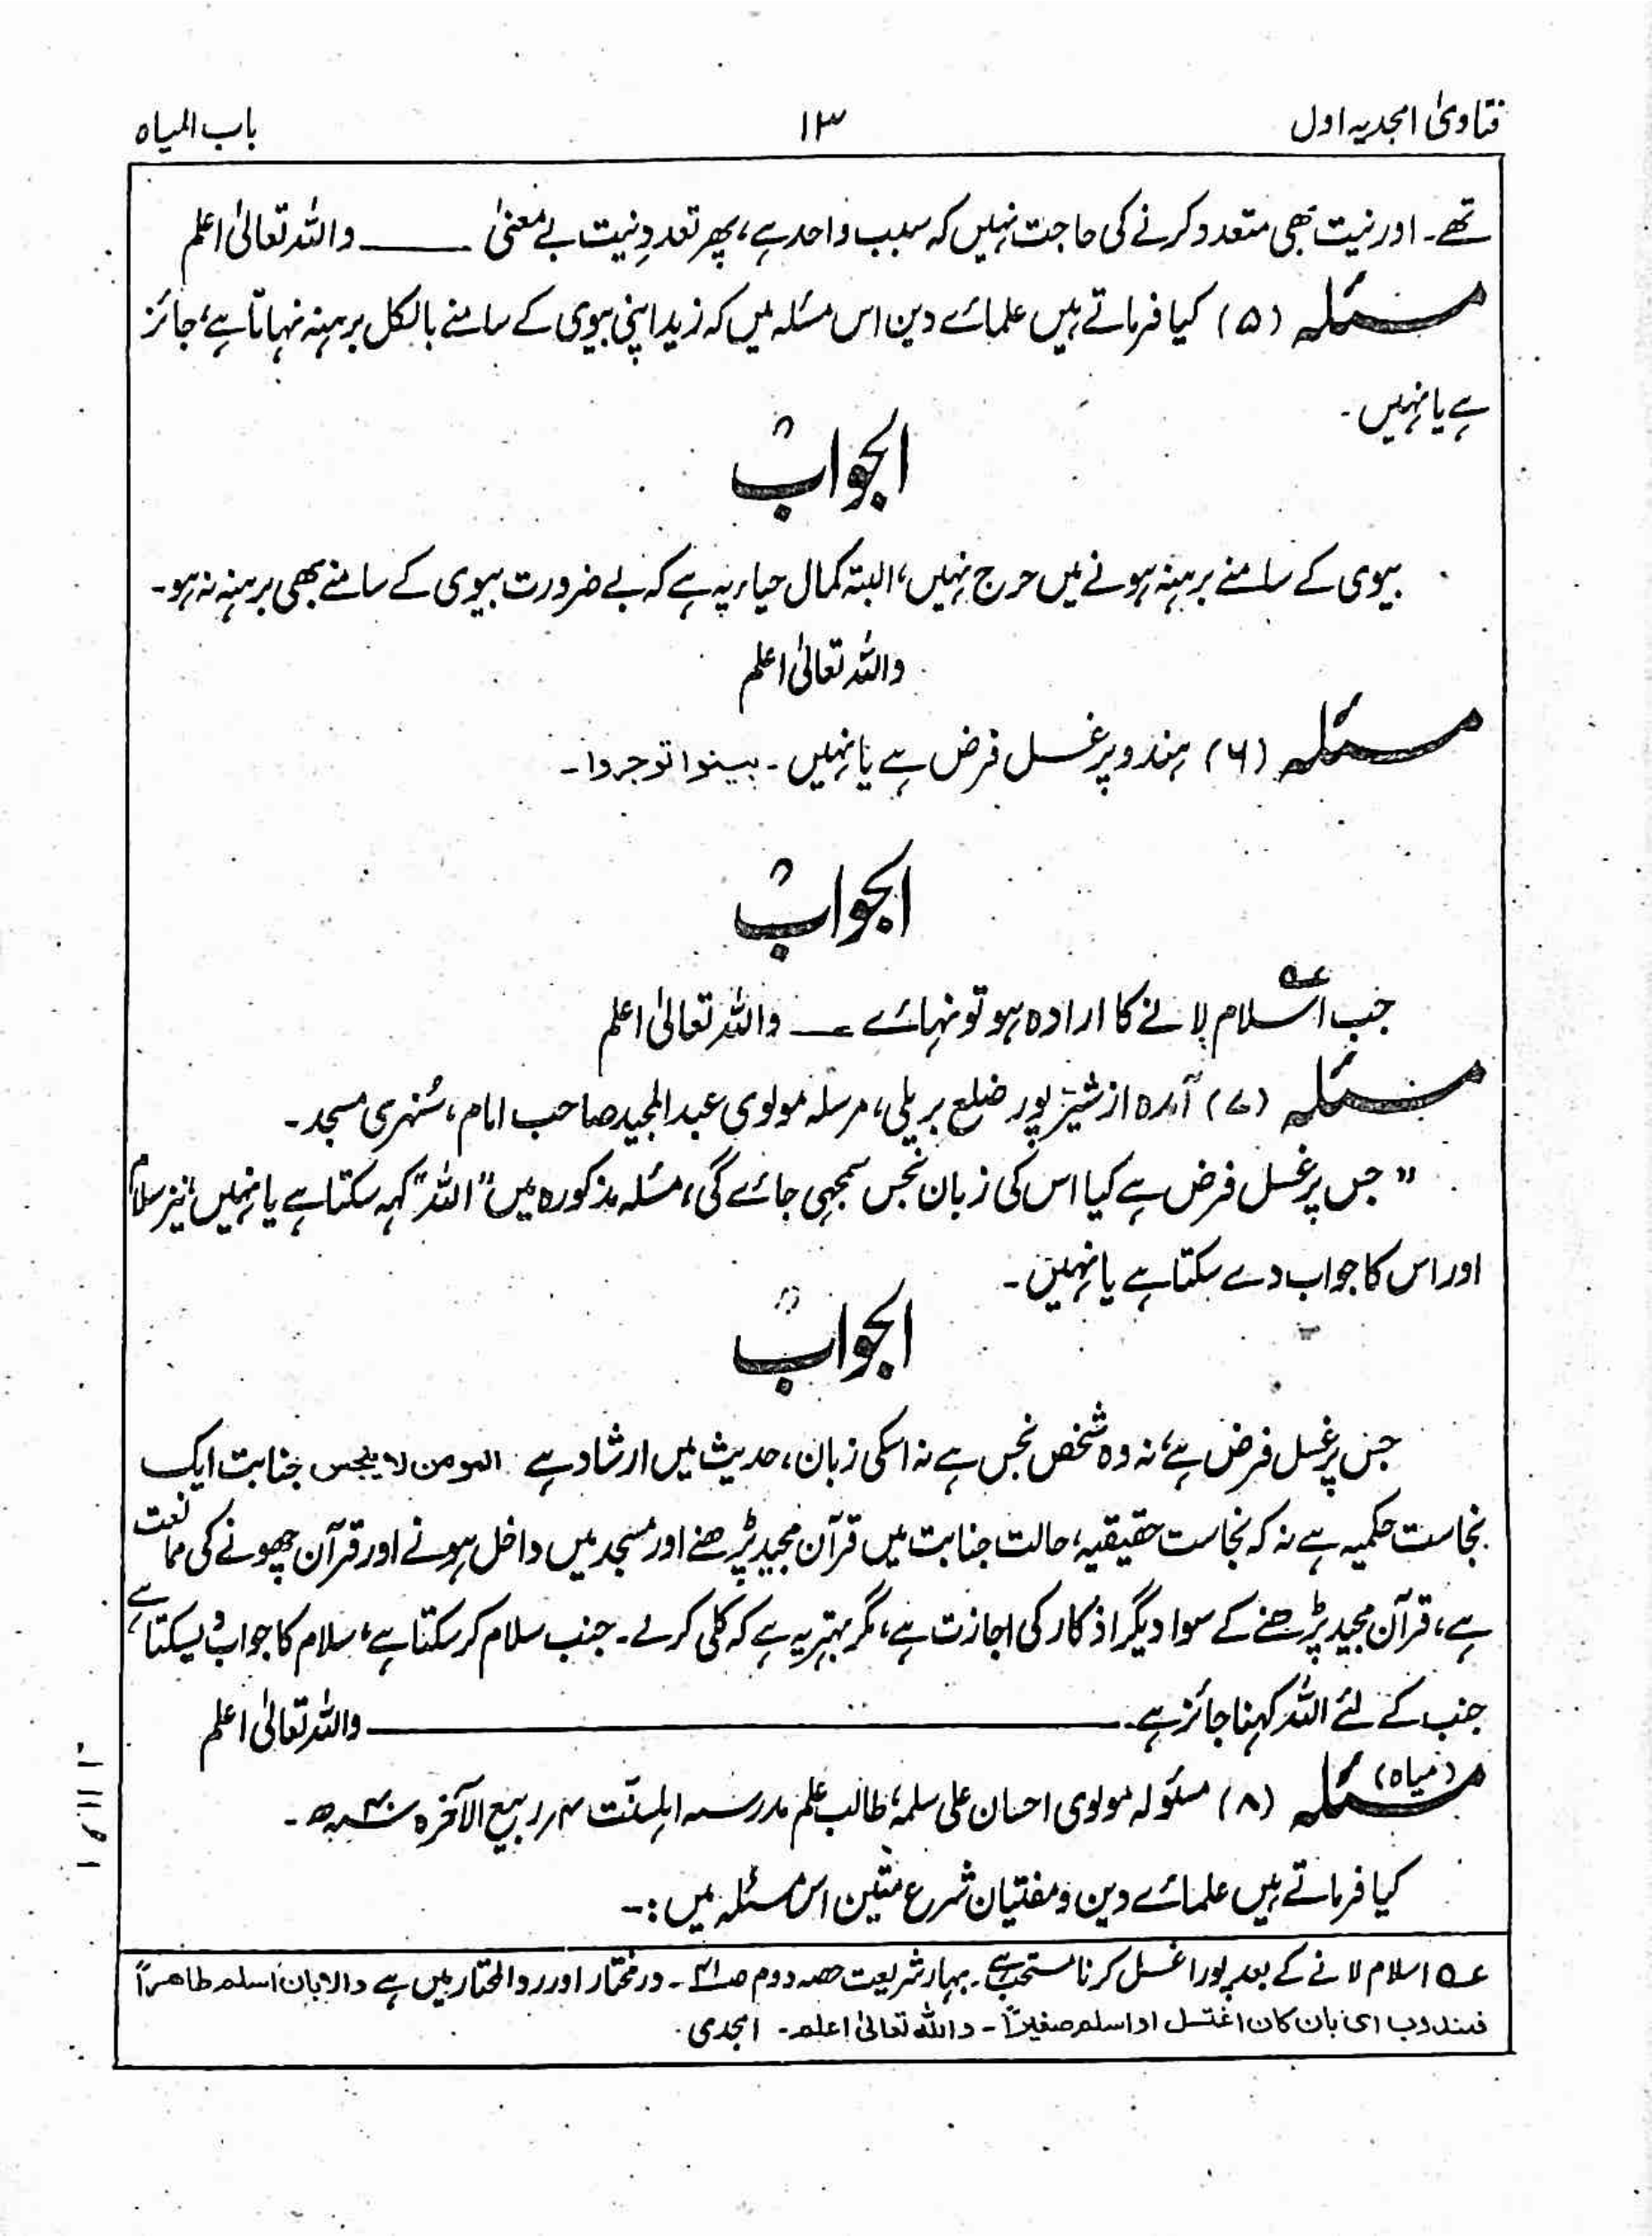 فتاویٰ امجدیہ اول ۱۳ باب المیاہ
تھے۔ اور نیت بھی متعدد کرنے کی حاجت نہیں کہ سبب واحد ہے، پھر تعددِ نیت بے معنیٰ ــــــ واللہ تعالیٰ اعلم
مسئلہ (۵) کیا فرماتے ہیں علمائے دین اس مسئلہ میں کہ زید اپنی بیوی کے سامنے بالکل برہنہ نہاتا ہے، جائز
ہے یا نہیں۔
الجواب
بیوی کے سامنے برہنہ ہونے میں حرج نہیں، البتہ کمال حیاء یہ ہے کہ بے ضرورت بیوی کے سامنے بھی برہنہ نہ ہو۔
واللہ تعالیٰ اعلم
مسئلہ (۶) ہندو پر غسل فرض ہے یا نہیں۔ بینوا توجروا۔
الجواب
جب اسلام عہ لانے کا ارادہ ہو تو نہائے ــــ واللہ تعالیٰ اعلم
مسئلہ (۷) آمدہ از شیر پور ضلع بریلی، مرسلہ مولوی عبد المجید صاحب امام، سُنہری مسجد۔
" جس پر غسل فرض ہے کیا اس کی زبان نجس سمجھی جائے گی، مسئلہ مذکورہ میں "اللہ" کہہ سکتا ہے یا نہیں، نیز سلام
اور اس کا جواب دے سکتا ہے یا نہیں۔
الجواب
جس پر غسل فرض ہے، نہ وہ شخص نجس ہے نہ اسکی زبان، حدیث میں ارشاد ہے المومن لا ینجس جنابت ایک
نجاست حکمیہ ہے نہ کہ نجاست حقیقیہ، حالت جنابت میں قرآن مجید پڑھنے اور مسجد میں داخل ہونے اور قرآن چھونے کی ممانعت
ہے، قرآن مجید پڑھنے کے سوا دیگر اذکار کی اجازت ہے، مگر بہتر یہ ہے کہ کلی کرلے۔ جنب سلام کرسکتا ہے، سلام کا جواب دیسکتا ہے،
جنب کے لئے اللہ کہنا جائز ہے۔ ــــــــــــ واللہ تعالیٰ اعلم
مسئلہ (میاہ) (۸) مسئولہ مولوی احسان علی سلمہ، طالب علم مدرسہ اہلسنّت ۴ ربیع الآخرہ ۴۰ھ۔
کیا فرماتے ہیں علمائے دین و مفتیان شرع متین اس مسئلہ میں :۔
عہ اسلام لانے کے بعد پورا غسل کرنا مستحب ہے۔ بہار شریعت حصہ دوم صـ۴۱۔ در مختار اور رد المختار میں ہے والا بان اسلم طاھراً
فمندوب ای بان کان اغتسل او اسلم صغیراً۔ واللہ تعالیٰ اعلم۔ امجدی